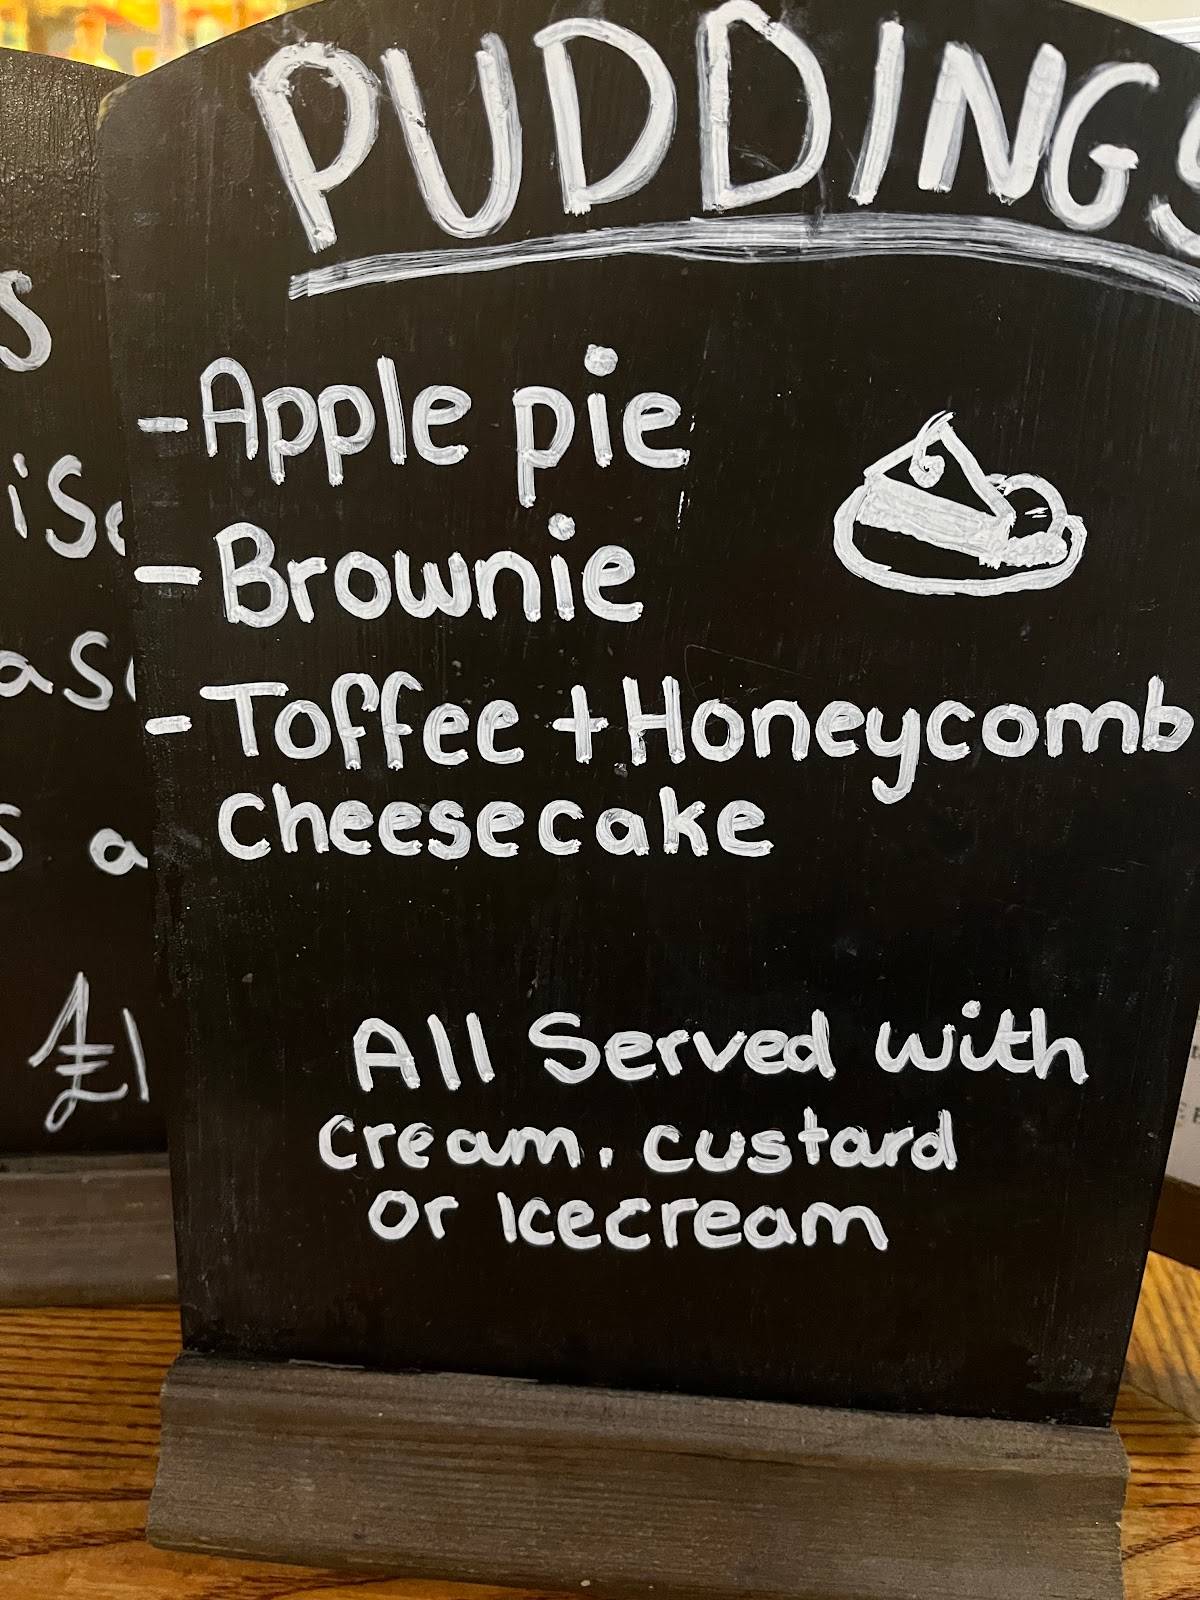 PUDDINGS
- Apple pie
- Brownie
- Toffee + Honeycomb
cheesecake
All Served with
cream, custard
or Icecream
£1